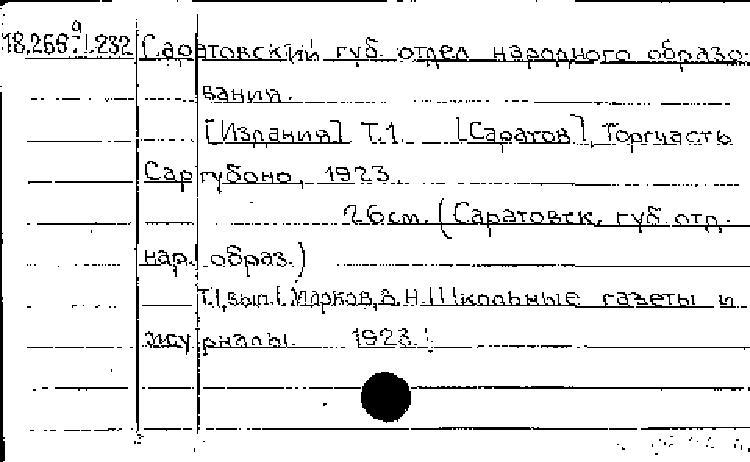 Саратовский губ. отдел народного образо-
вания.
[Издания] Т.1. [Саратов], Торгчасть
Саргубоно, 1923.
26см. (Саратовск. губ. отд.
нар. образ.)
Т.1, вып.1. Марков, В.Н. Школьные газеты и
журналы. 1923.